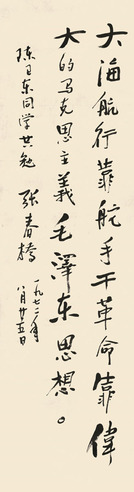 大海航行靠航手干革命靠偉
大的马克思主義毛澤东思想。
陈日东同学共勉 张春橋
一九七二年
八月廿五日